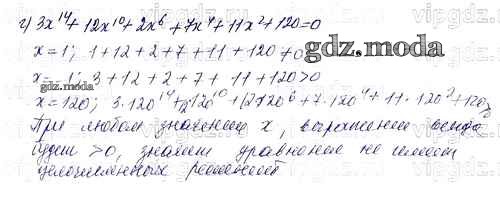 г) 3x¹⁴ + 12x¹⁰ + 2x⁶ + 7x⁴ + 11x² + 120 = 0
x = 1; 1 + 12 + 2 + 7 + 11 + 120 ≠ 0
gdz.moda
x = -1; 3 + 12 + 2 + 7 + 11 + 120 > 0
gdz.moda
x = 120; 3·120¹⁴ + 12·120¹⁰ + 2·120⁶ + 7·120⁴ + 11·120² + 120 >
При любом значении x, выражение всегда
будет > 0, значит уравнение не имеет
целочисленных решений